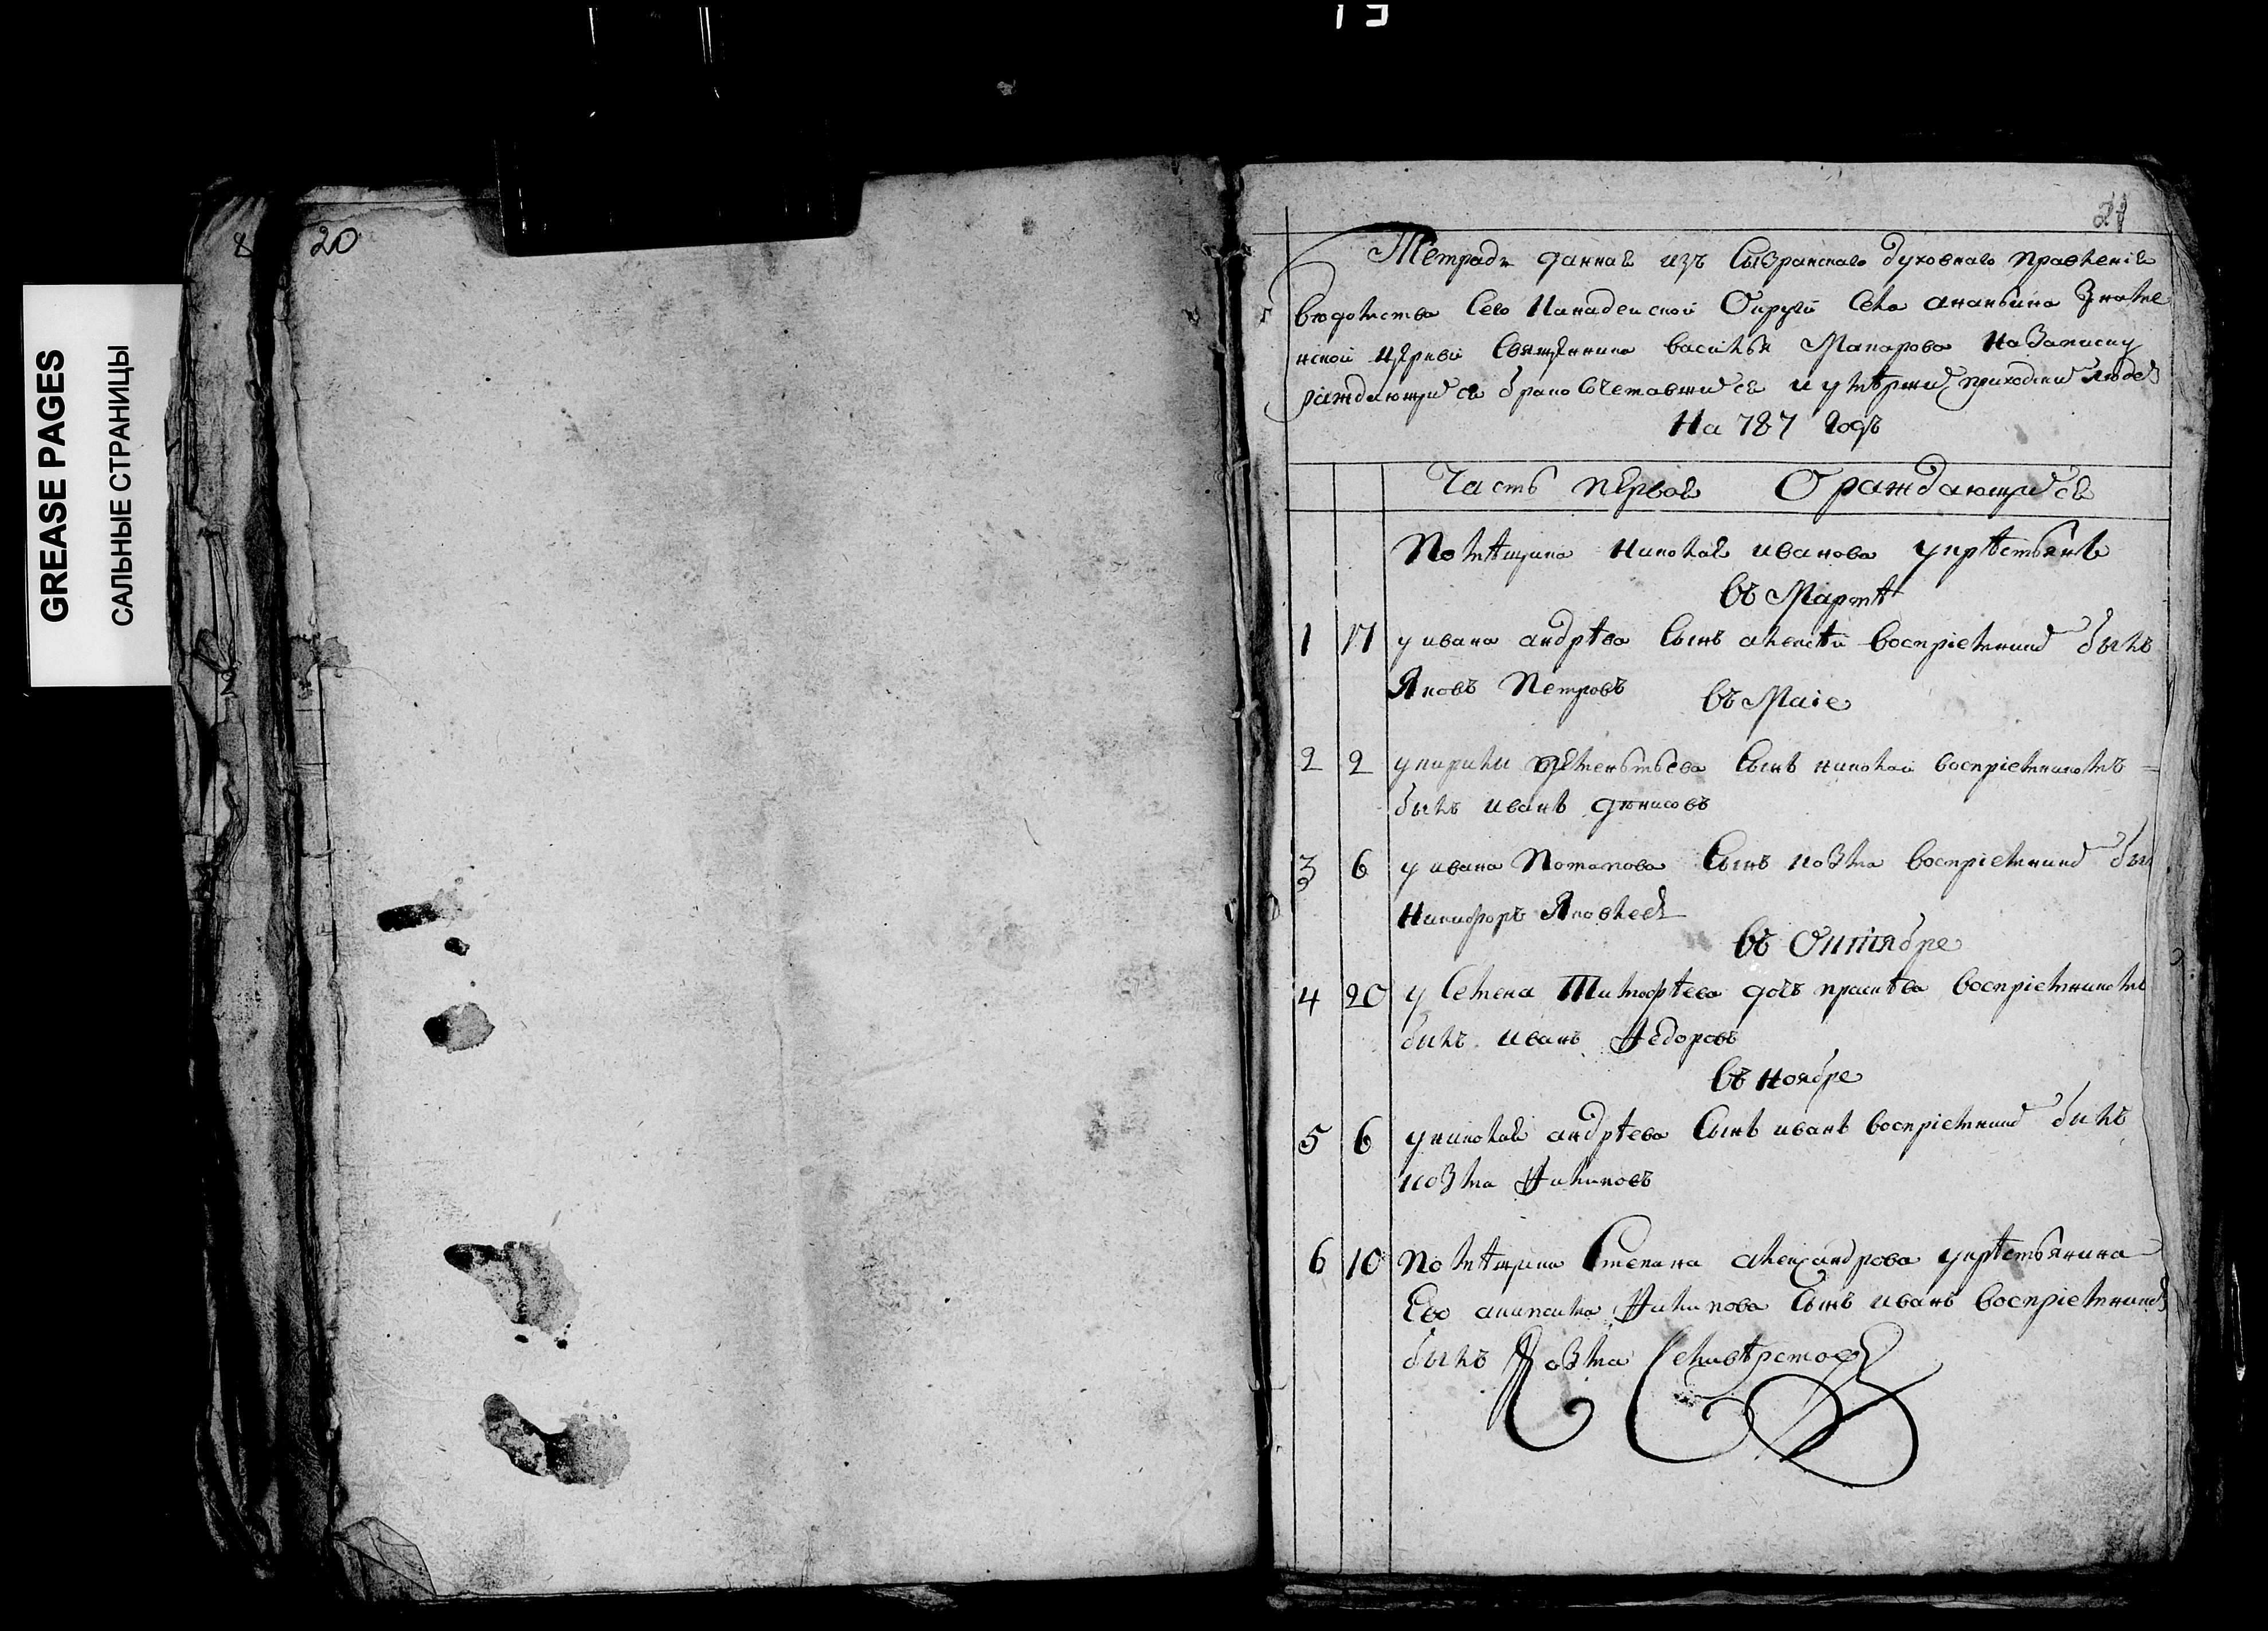 GREASE PAGES
САЛЬНЫЕ СТРАНИЦЫ
8
20
21
Тетрадь данная изъ Сызранскаго духовнаго правленія
вѣдомства Сего Канадейской Округи Села ананьина Знаме
нской церкви Священника василья Макарова На Записку
раждающихся бракосочетавшихся и умерших приходских людей
На 787 годъ
Часть первая О раждающихся
Помѣщика Николая иванова укрѣстьянъ
въ Мартѣ
1 17 у ивана андрѣева Сынъ алексѣй воспріемник былъ
Яковъ Петровъ
въ Маіе
2 2 у кирилы Сынъ николай воспріемникомъ
былъ иванъ денисовъ
3 6 у ивана Потапова Сынъ козма воспріемник бы
Никифоръ Яковлев
въ Октябре
4 20 у Семена Тимофѣева дочь праскѣва воспріемником
былъ иванъ Ѳедоровъ
въ ноябре
5 6 у николая андрѣева Сынъ иванъ воспріемник былъ
козма Филиповъ
6 10 помѣщика Степана александрова укрѣстьянина
Его Филипова Сынъ иванъ воспріемник
былъ Козма Селивѣрстов